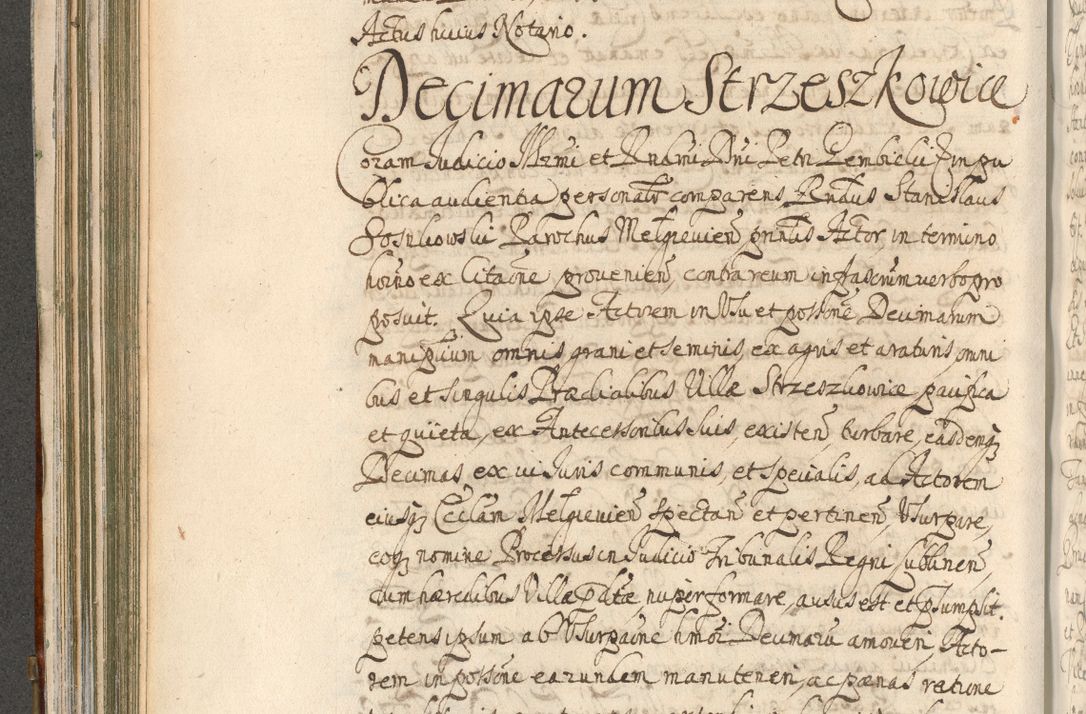 Actus huius Notario.
Decimarum Strzeszkowice
Coram Judicio Illrmi et Rndmi Dni Petri Gembiclii E in pu
blica audientia personalr comparens Rndus Stanislaus
Parochus Melgievien pntis Actor, in termino
hoino ex Citaone provenien contra reum infrascrim verbo pro
posuit. Quia ipse Actorem in Usu et possone Decimarum
manipulium omnis grani et seminis, ex agris et araturis, omni
bus et singulis Prædialibus Villæ Strzeszkowice pacifica
et quieta, ex Antecessoribus suis, existen turbare, easdemq
Decimas, ex vi Juris communis, et specialis, ad Actorem
eiusq Ecclam Melgievien spectan et pertinen, Usurpare,
eoq nomine Processus in Judicio Tribunalis Regni Lublinen,
cum hæredibus Villæ pdtæ, nuper formare, ausus est et psumpsit.
petens ipsum ab Usurpaone hmoi Decimaru amoveri, Acto-
rem in possone earundem manuteneri, ac pænas ratione